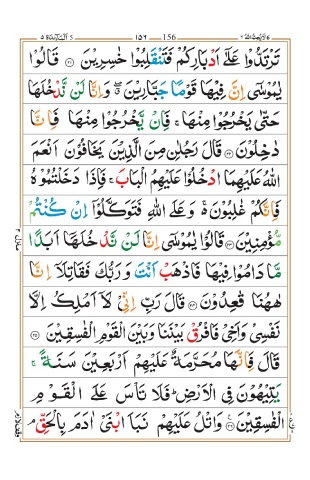 156 ١٥٦
تَرْتَدُّوْا عَلٰٓى اَدْبَارِكُمْ فَتَنْقَلِبُوْا خٰسِرِيْنَ ۝٢١ قَالُوْا
يٰمُوْسٰٓى اِنَّ فِيْهَا قَوْمًا جَبَّارِيْنَ ۖ وَاِنَّا لَنْ نَّدْخُلَهَا
حَتّٰى يَخْرُجُوْا مِنْهَا ۚ فَاِنْ يَّخْرُجُوْا مِنْهَا فَاِنَّا
دٰخِلُوْنَ ۝٢٢ قَالَ رَجُلٰنِ مِنَ الَّذِيْنَ يَخَافُوْنَ اَنْعَمَ
اللّٰهُ عَلَيْهِمَا ادْخُلُوْا عَلَيْهِمُ الْبَابَ ۚ فَاِذَا دَخَلْتُمُوْهُ
فَاِنَّكُمْ غٰلِبُوْنَ ۚ۬ وَعَلَى اللّٰهِ فَتَوَكَّلُوْٓا اِنْ كُنْتُمْ
مُّؤْمِنِيْنَ ۝٢٣ قَالُوْا يٰمُوْسٰٓى اِنَّا لَنْ نَّدْخُلَهَآ اَبَدًا
مَّا دَامُوْا فِيْهَا فَاذْهَبْ اَنْتَ وَرَبُّكَ فَقَاتِلَآ اِنَّا
هٰهُنَا قٰعِدُوْنَ ۝٢٤ قَالَ رَبِّ اِنِّيْ لَآ اَمْلِكُ اِلَّا
نَفْسِيْ وَاَخِيْ فَافْرُقْ بَيْنَنَا وَبَيْنَ الْقَوْمِ الْفٰسِقِيْنَ ۝٢٥
قَالَ فَاِنَّهَا مُحَرَّمَةٌ عَلَيْهِمْ اَرْبَعِيْنَ سَنَةً ۚ
يَتِيْهُوْنَ فِي الْاَرْضِ ۭ فَلَا تَاْسَ عَلَى الْقَوْمِ
الْفٰسِقِيْنَ ۝٢٦ وَاتْلُ عَلَيْهِمْ نَبَاَ ابْنَيْ اٰدَمَ بِالْحَقِّ ۘ